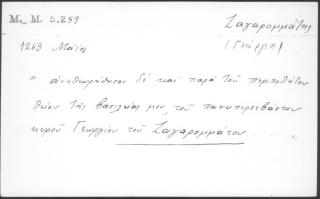 M. M. 5,259
Ζαγαρομμάτης
1263 Μάϊος
(Γεώργιος)
" ἀνεθεωρήθησαν δὲ καὶ παρὰ τοῦ περιποθήτου
θείου τῆς βασιλείας μου, τοῦ πανυπερσεβάστου
κυροῦ Γεωργίου τοῦ Ζαγαρομμάτου ..... "